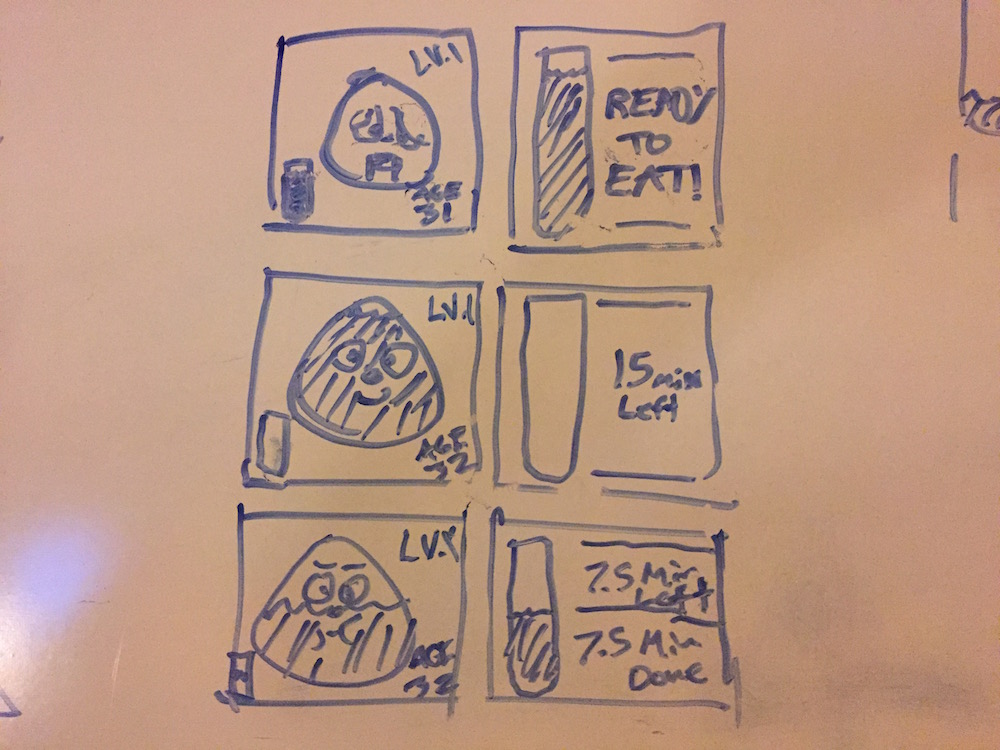 LV.1
AGE
31
READY
TO
EAT!
LV.1
AGE
32
15 min
Left
LV.1
AGE
32
7.5 Min
Left
7.5 Min
Done